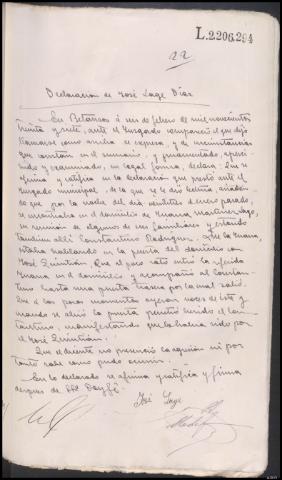 L.2206,294
22
Declaración de José Lage Díaz
En Betanzos a uno de febrero de mil novecientos
treinta y siete, ante el Juzgado compareció el que dijo
llamarse como arriba se expresa, y de circunstancias
que constan en el sumario, y juramentado, aperci-
bido y examinado, en legal forma, declara: Que se
afirma y ratifica en la declaración que prestó ante el
Juzgado municipal, de la que se le dio lectura, añadien-
do que por la noche del día veintitrés de enero pasado,
se encontraba en el domicilio de Juana Martínez Lago,
en reunión de algunos de sus familiares y estando
también allí Constantino Rodríguez. Que la Juana,
estaba hablando en la puerta del domicilio con
José Quintián. Que al poco rato entró la referida
Juana en el domicilio y acompañó al Constan-
tino hasta una puerta trasera por la cual salió.
Que a los pocos momentos oyeron voces de éste y
cuando se abrió la puerta penetró herido el Cons-
tantino, manifestando que lo había sido por
el José Quintián.
Que el dicente no presenció la agresión ni por
tanto sabe como pudo ocurrir.
En lo declarado se afirma y ratifica y firma
después de SSª Doy fé.
José Lage